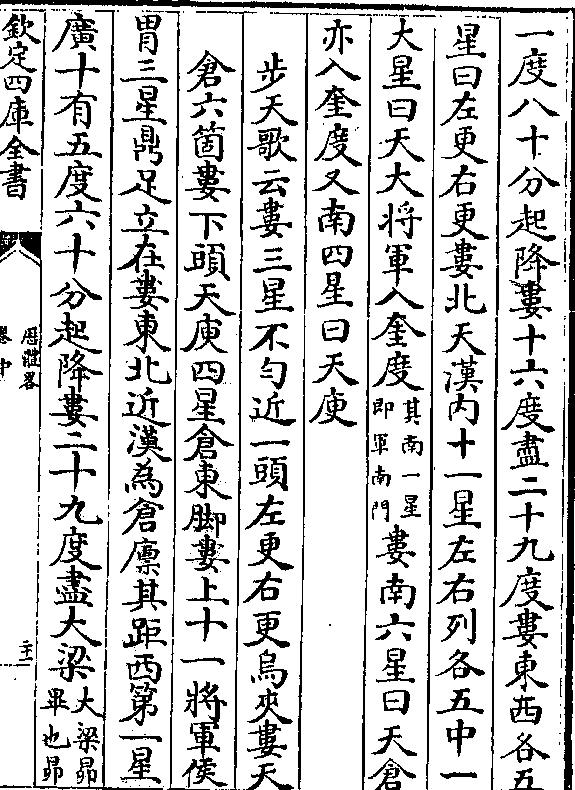 一度八十分起降婁十六度盡二十九度婁東西各五
星曰左更右更婁北天漢内十一星左右列各五中一
大星曰天大將軍入奎度其南一星即軍南門婁南六星曰天倉
亦入奎度又南四星曰天庾
步天歌云婁三星不勻近一頭左更右更烏夾婁天
倉六箇婁下頭天庾四星倉東脚婁上十一將軍侯
胃三星鼎足立在婁東北近漢為倉廩其距西第一星
廣十有五度六十分起降婁二十九度盡大梁大梁昴畢也昴
欽定四庫全書
厯體畧
卷中